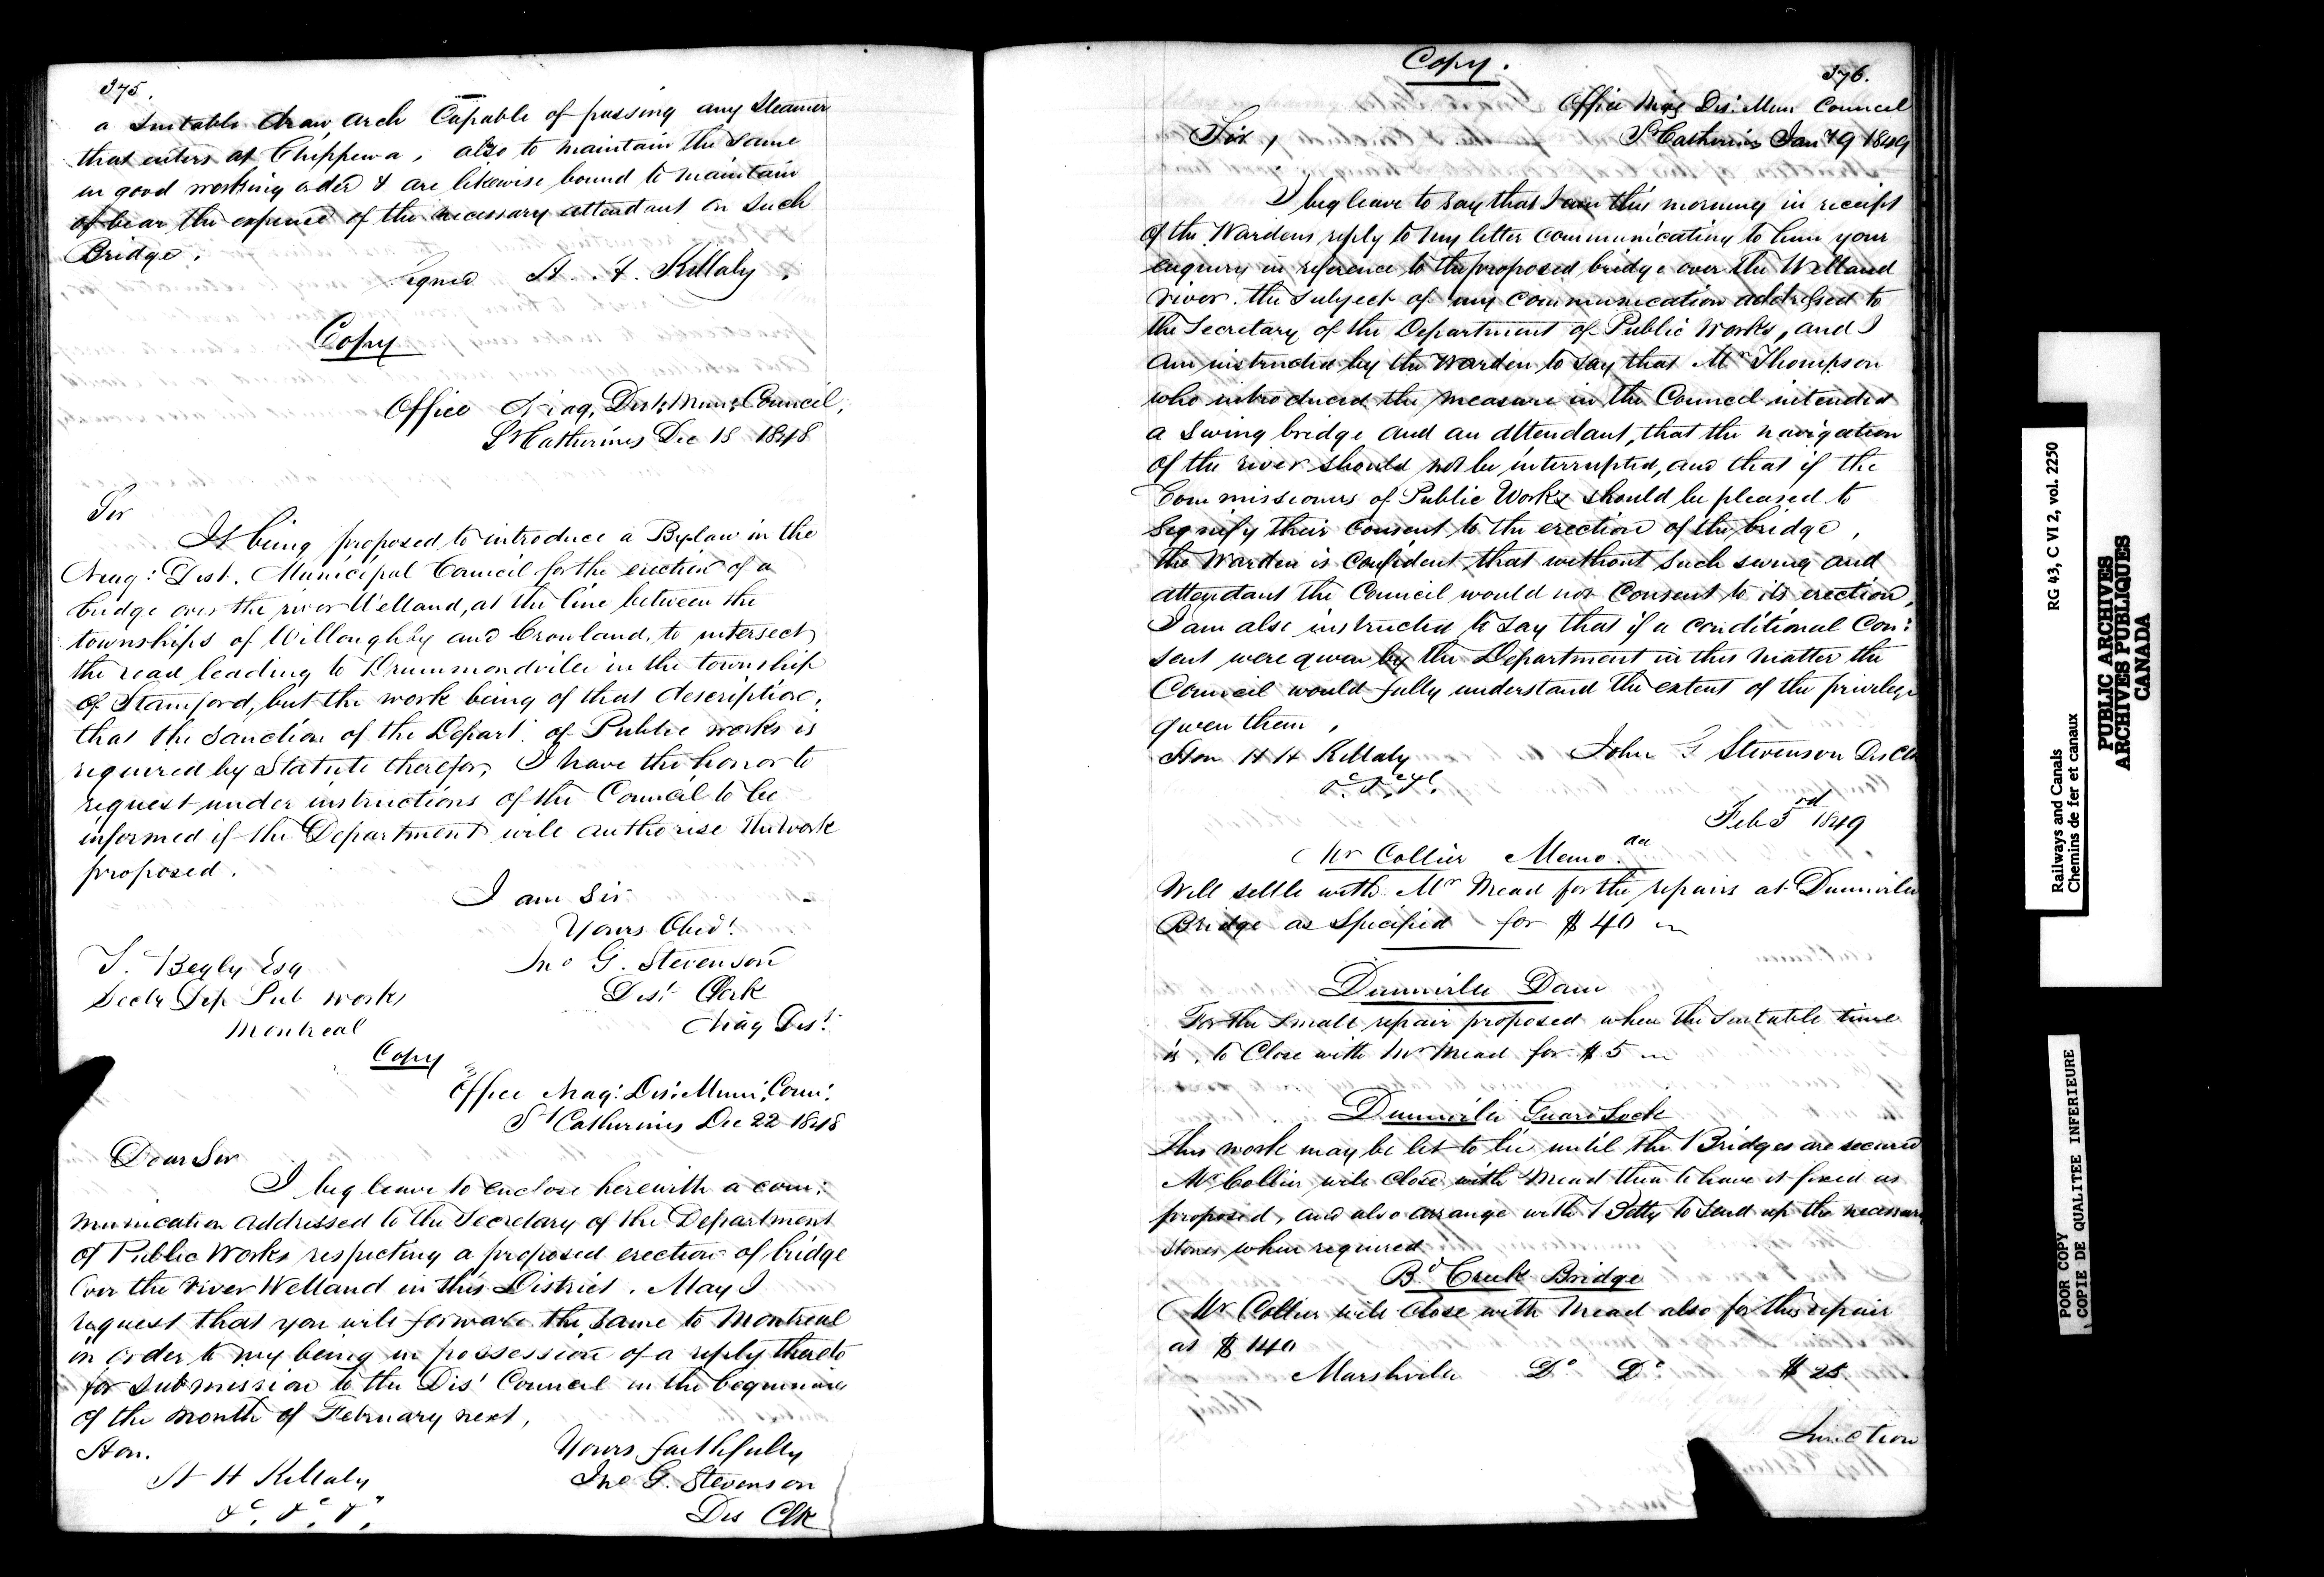 375.
a Suitable draw arch Capable of passing any Steamer
that enters at Chippewa, also to maintain the same
in good working order & are likewise bound to maintain
& bear the expense of the necessary attendant on Such
Bridge.
Signed H. H. Killaly.
Copy
Office Niag. Dist. Muni Council,
St Catherines Dec 18 1848
Sir
It being proposed to introduce a By-law in the
Niag: Dist. Municipal Council for the erection of a
bridge over the river Welland, at the line between the
townships of Willoughby and Crowland, to intersect
the road leading to Drummondville in the township
of Stamford, but the work being of that description,
that the Sanction of the Depart. of Public works is
required by Statute therefor, I have the honor to
request under instructions of the Council to be
informed if the Department will authorise the work
proposed.
I am Sir
Yours Obedt.
T. Begly Esq
Jno G. Stevenson
Secty Dep Pub works
Dist Clerk
Montreal
Niag Dist.
Copy
Office Niag: Dis: Muni. Coun.
St Catherines Dec 22 1848
Dear Sir
I beg leave to enclose herewith a com:
munication addressed to the Secretary of the Department
of Public Works respecting a proposed erection of bridge
over the river Welland in this District. May I
request that you will forward the same to Montreal
in order to my being in possession of a reply thereto
for submission to the Dis' Council in the beginning
of the month of February next,
Hon.
Yours faithfully
H H Killaly
Jno G. Stevenson
&c. &c. &c.
Dis Clk
Copy.
376.
Office Niag Dis: Mun Council
Sir,
St Catherines Jan 19 1849
I beg leave to say that I am this morning in receipt
of the Wardens reply to my letter communicating to him your
enquiry in reference to the proposed bridge over the Welland
river. the subject of my communication addressed to
the Secretary of the Department of Public Works, and I
am instructed by the Warden to say that Mr Thompson
who introduced the measure in the Council intended
a Swing bridge and an attendant, that the navigation
of the river should not be interrupted, and that if the
Commissioners of Public Works should be pleased to
Signify their consent to the erection of the bridge,
the Warden is Confident that without such swing and
attendant the Council would not Consent to its erection,
I am also instructed to say that if a Conditional Con:
sent were given by the Department in this matter the
Council would fully understand the extent of the privilege
given them,
Hon H H Killaly
John G Stevenson Dis Clk
&c. &c. &c.
Feb 3rd 1849
Mr Collier Memo. da
Will settle with Mr Mead for the repairs at Dunnville
Bridge as Specified for $40
Dunnville Dam
For the small repair proposed when the Suitable time
is, to Close with Mr Mead for $5
Dunnville Guard Lock
This work may be let to lie until the Bridges are secured
Mr Collier will close with Mead then to have it fixed as
proposed, and also arrange with Betty to Send up the necessary
stones when required
Bd Creek Bridge
Mr Collier will Close with Mead also for this repair
at $140
Marshville Do Do $25
Junction
Railways and Canals RG 43, C VI 2, vol. 2250
Chemins de fer et canaux
PUBLIC ARCHIVES
ARCHIVES PUBLIQUES
CANADA
POOR COPY
COPIE DE QUALITEE INFERIEURE